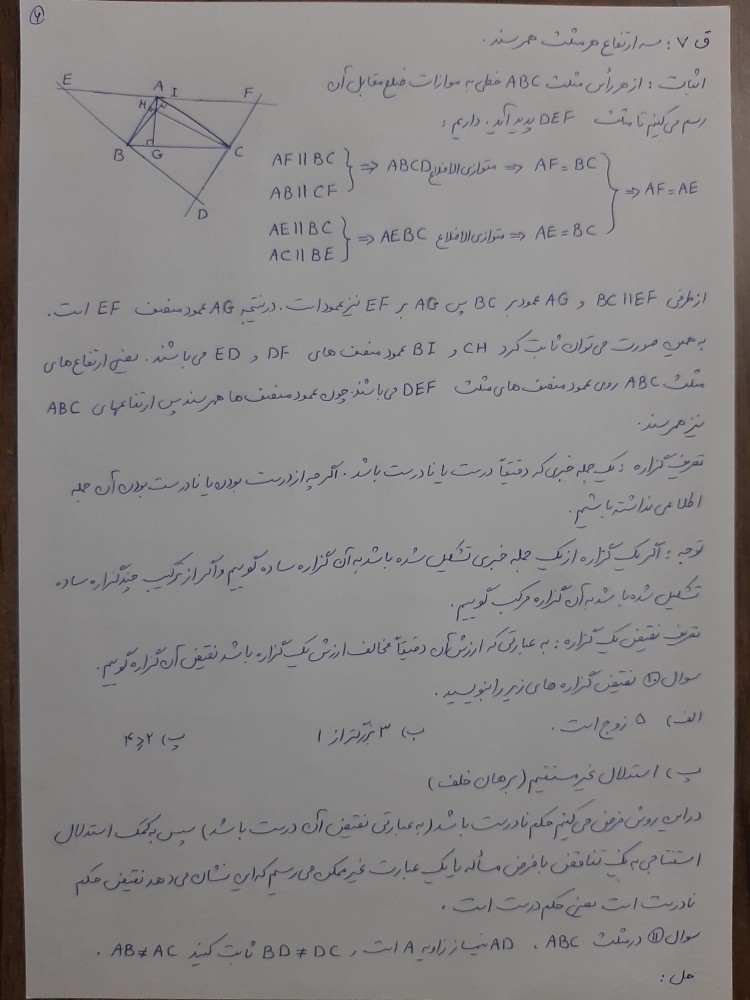 ۴
ق ۷ : سه ارتفاع هر مثلث همرسند.
اثبات : از هر رأس مثلث ABC خطی به موازات ضلع مقابل آن
رسم می‌کنیم تا مثلث DEF پدید آید. داریم :
E A I F
H
B G C
D
AF || BC
AB || CF } ⇒ ABCD متوازی الاضلاع ⇒ AF = BC
AE || BC
AC || BE } ⇒ AEBC متوازی الاضلاع ⇒ AE = BC
} ⇒ AF = AE
از طرفی BC || EF و AG عمود بر BC پس AG بر EF نیز عمود است. در نتیجه AG عمود منصف EF است.
به همین صورت می‌توان ثابت کرد CH و BI عمود منصف های DF و ED می‌باشند. یعنی ارتفاع های
مثلث ABC روی عمود منصف های مثلث DEF می‌باشند. چون عمود منصف ها همرسند پس ارتفاعهای ABC
نیز همرسند.
تعریف گزاره : یک جمله خبری که دقیقاً درست یا نادرست باشد. اگر چه از درست بودن یا نادرست بودن آن جمله
اطلاعی نداشته باشیم.
توجه : اگر یک گزاره از یک جمله خبری تشکیل شده باشد به آن گزاره ساده گوییم و اگر از ترکیب چند گزاره ساده
تشکیل شده باشد به آن گزاره مرکب گوییم.
تعریف نقیض یک گزاره : به عبارتی که ارزش آن دقیقاً مخالف ارزش یک گزاره باشد نقیض آن گزاره گوییم.
سوال ۱۰ نقیض گزاره های زیر را بنویسید.
الف) ۵ زوج است. ب) ۳ بزرگتر از ۱ پ) ۲ ≥ ۴
پ) استدلال غیر مستقیم (برهان خلف)
در این روش فرض می‌کنیم حکم نادرست باشد (به عبارتی نقیض آن درست باشد) سپس به کمک استدلال
استنتاجی به یک تناقض با فرض مسأله یا یک عبارت غیر ممکن می‌رسیم که این نشان می‌دهد نقیض حکم
نادرست است یعنی حکم درست است.
سوال ۱۱ در مثلث ABC ، AD نیمساز زاویه A است و BD ≠ DC ثابت کنید AB ≠ AC .
حل :